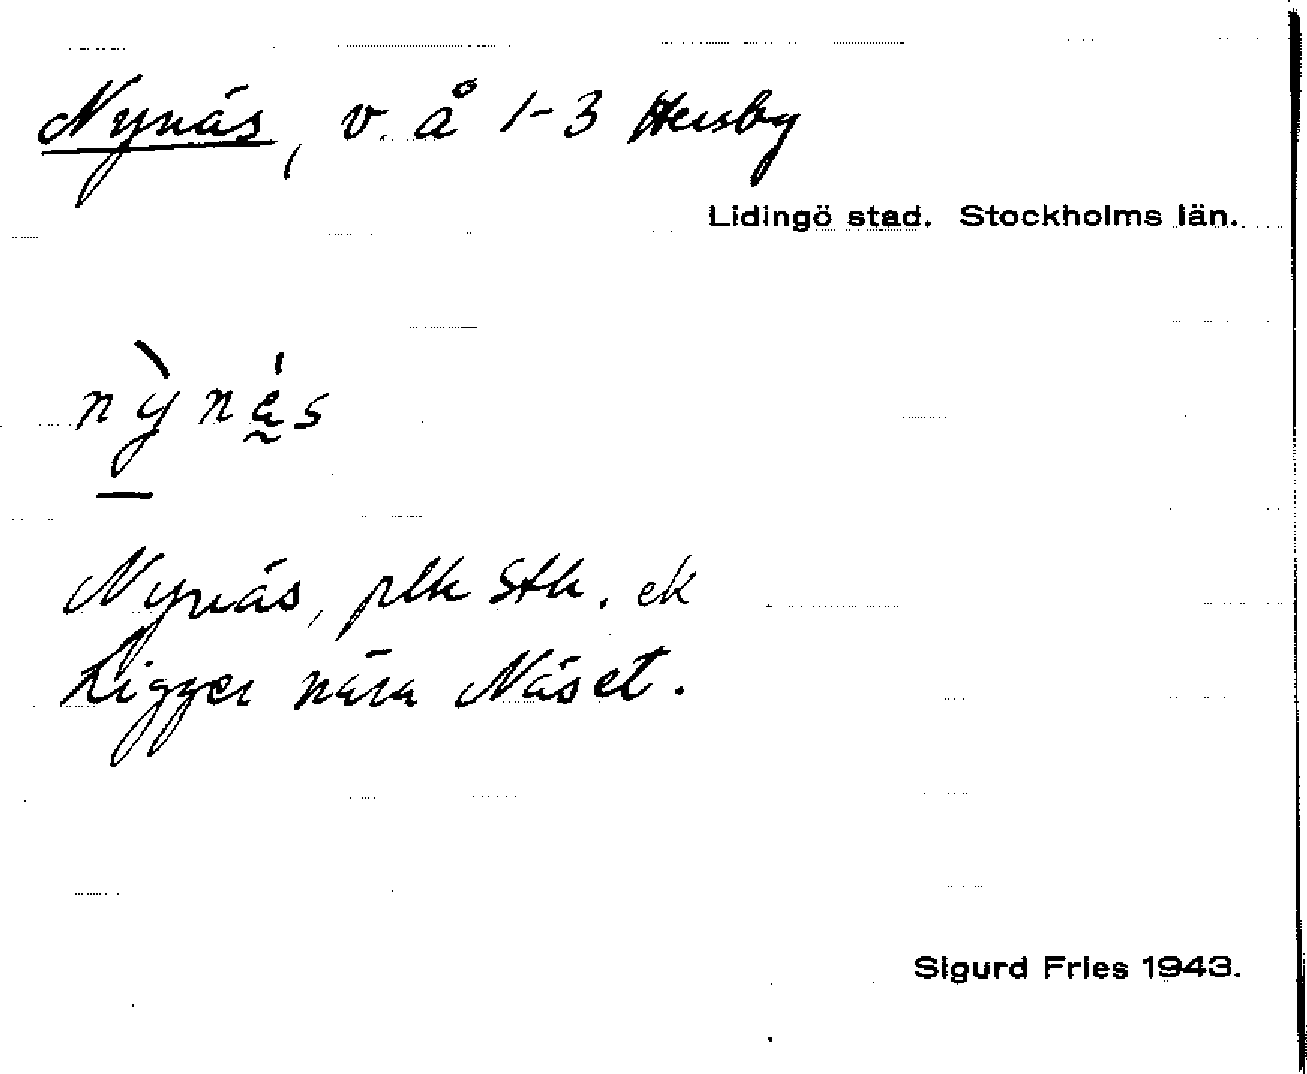 Nynäs, v. å 1-3 Hersby
Lidingö stad. Stockholms län.
nỳnä́s
Nynäs, plk Sth. ek
Ligger nära Näset.
Sigurd Fries 1943.